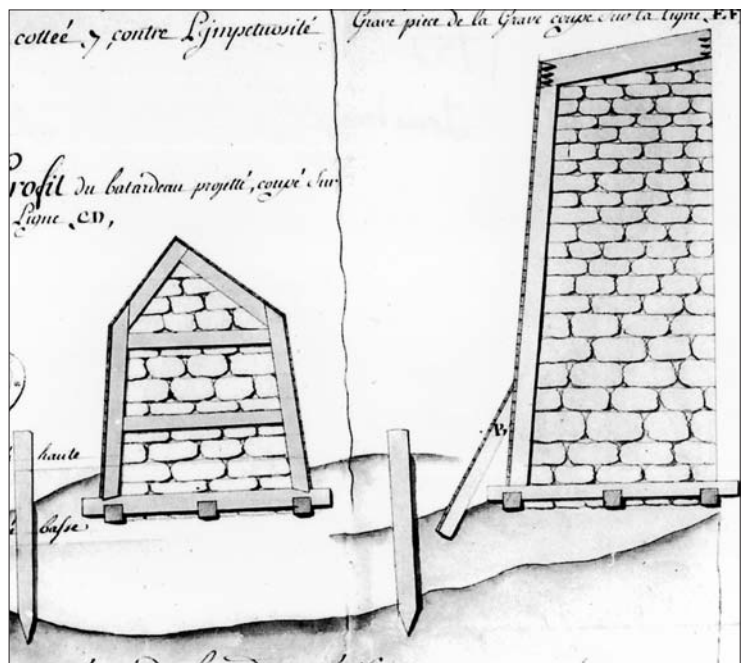 cotteé, y contre L'jmpetuosité
Grave piece de la Grave coupe Sur la ligne EF
Profil du batardeau projetté, coupé Sur
Ligne CD,
haute
basse